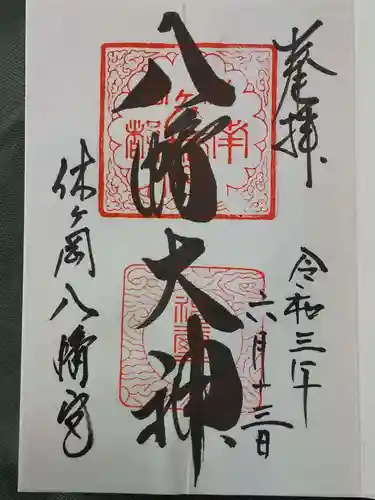 奉拝
八幡大神
令和三年
六月十三日
休ヶ岡八幡宮